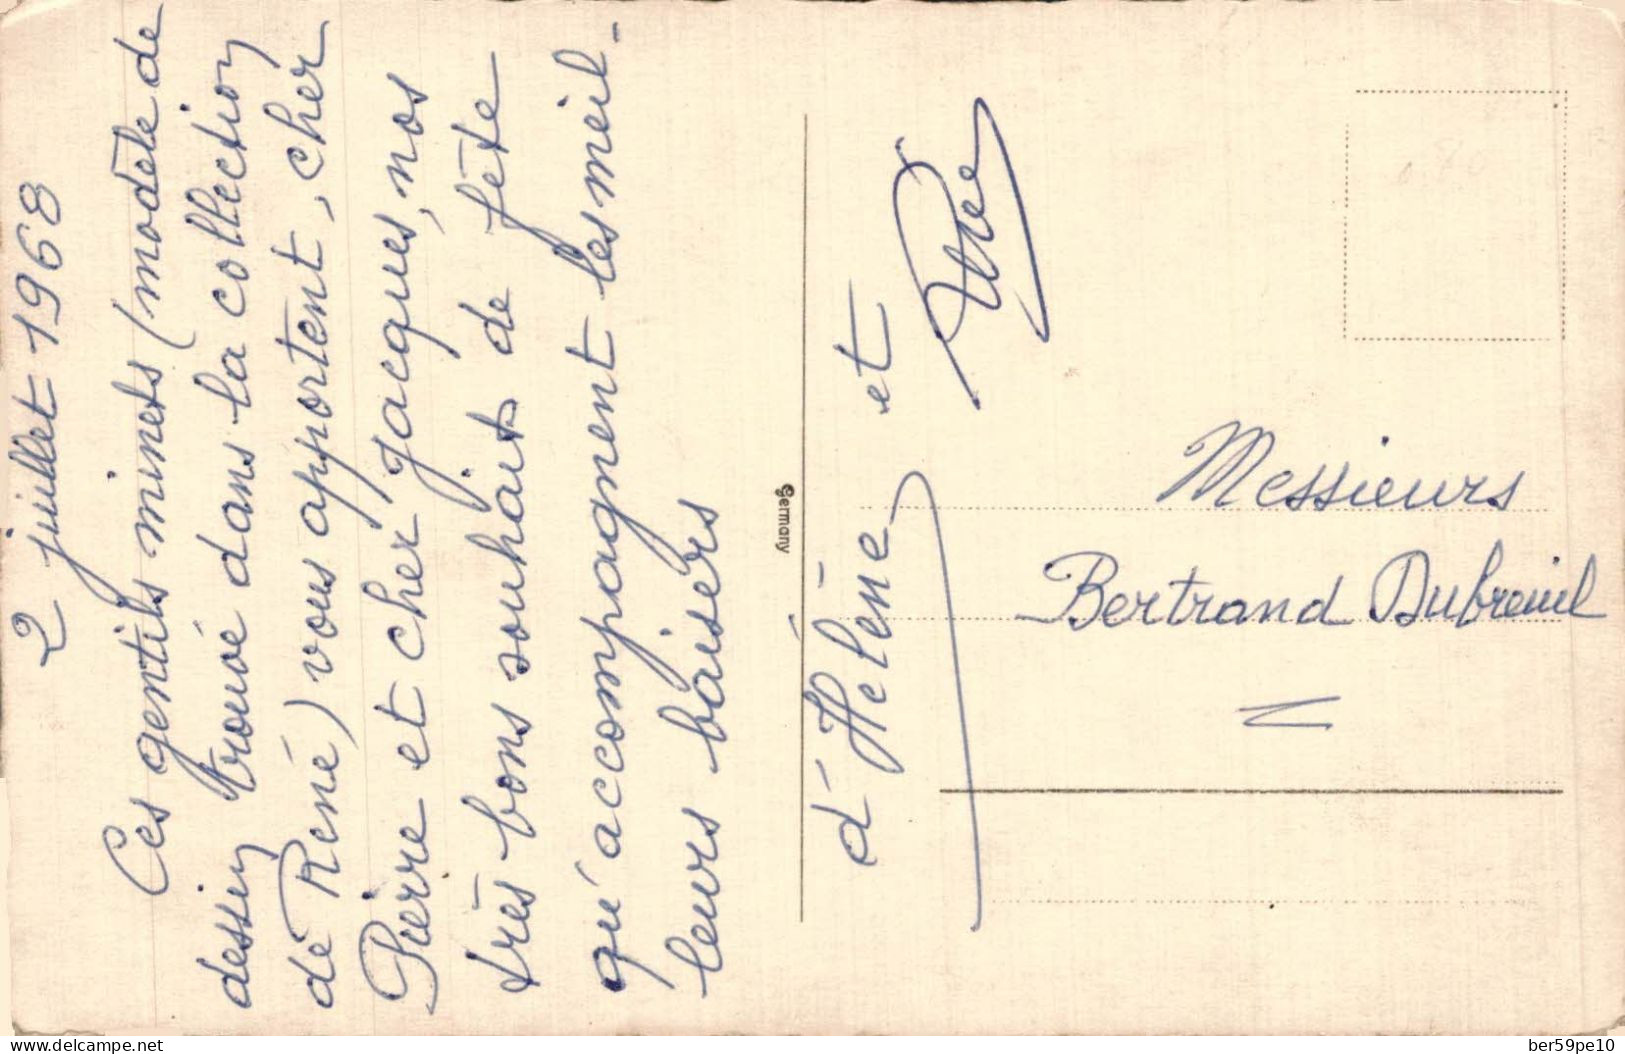 2 juillet 1968
Ces gentils minets (modèle de
dessin trouvé dans la collection
de René) vous apportent, cher
Pierre et cher Jacques, nos
très bons souhaits de fête
qu'accompagnent les meil-
leurs baisers
d'Hélène et
René
Germany
Messieurs
Bertrand Dubreuil
delcampe.net
ber59pe10